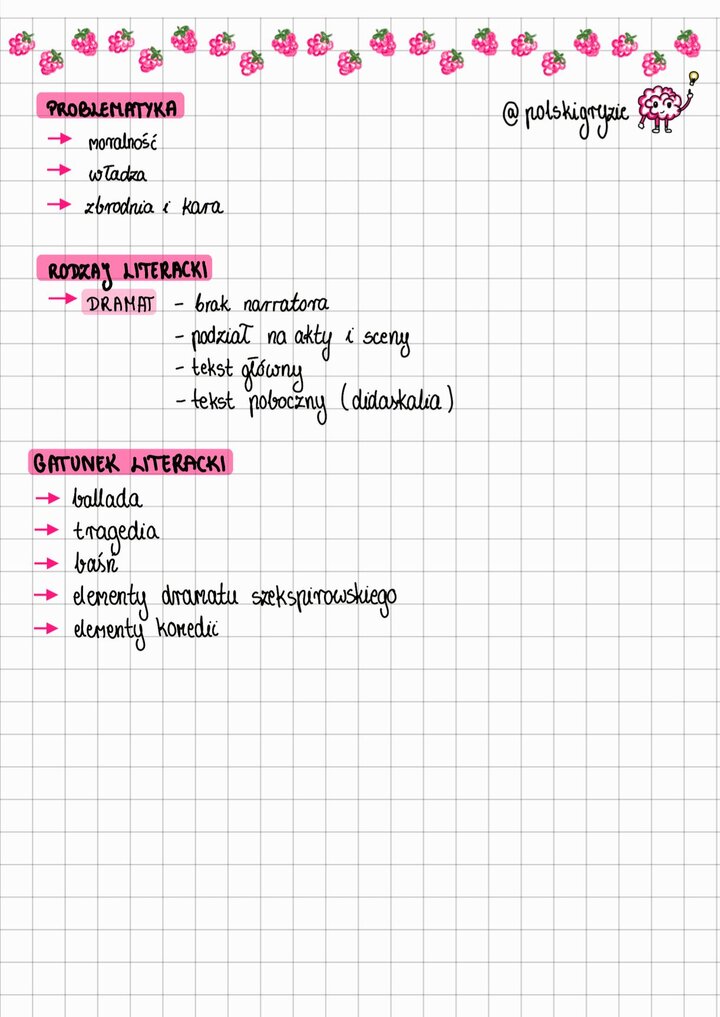 PROBLEMATYKA
@polskigryzie
→ moralność
→ władza
→ zbrodnia i kara
RODZAJ LITERACKI
→ DRAMAT - brak narratora
- podział na akty i sceny
- tekst główny
- tekst poboczny (didaskalia)
GATUNEK LITERACKI
→ ballada
→ tragedia
→ baśń
→ elementy dramatu szekspirowskiego
→ elementy komedii